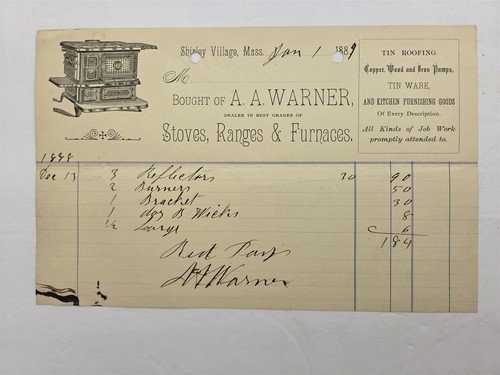 Shirley Village, Mass. Jan 1 1889
M.
BOUGHT OF A. A. WARNER,
DEALER IN BEST GRADES OF
Stoves, Ranges & Furnaces,
TIN ROOFING
Copper, Wood and Iron Pumps,
TIN WARE,
AND KITCHEN FURNISHING GOODS
Of Every Description.
All Kinds of Job Work
promptly attended to.
1888
Dec 13 3 Reflectors 30 90
2 Burners 50
1 Bracket 30
1 doz B Wicks 8
1/2 6
184
Red Pay
A A Warner